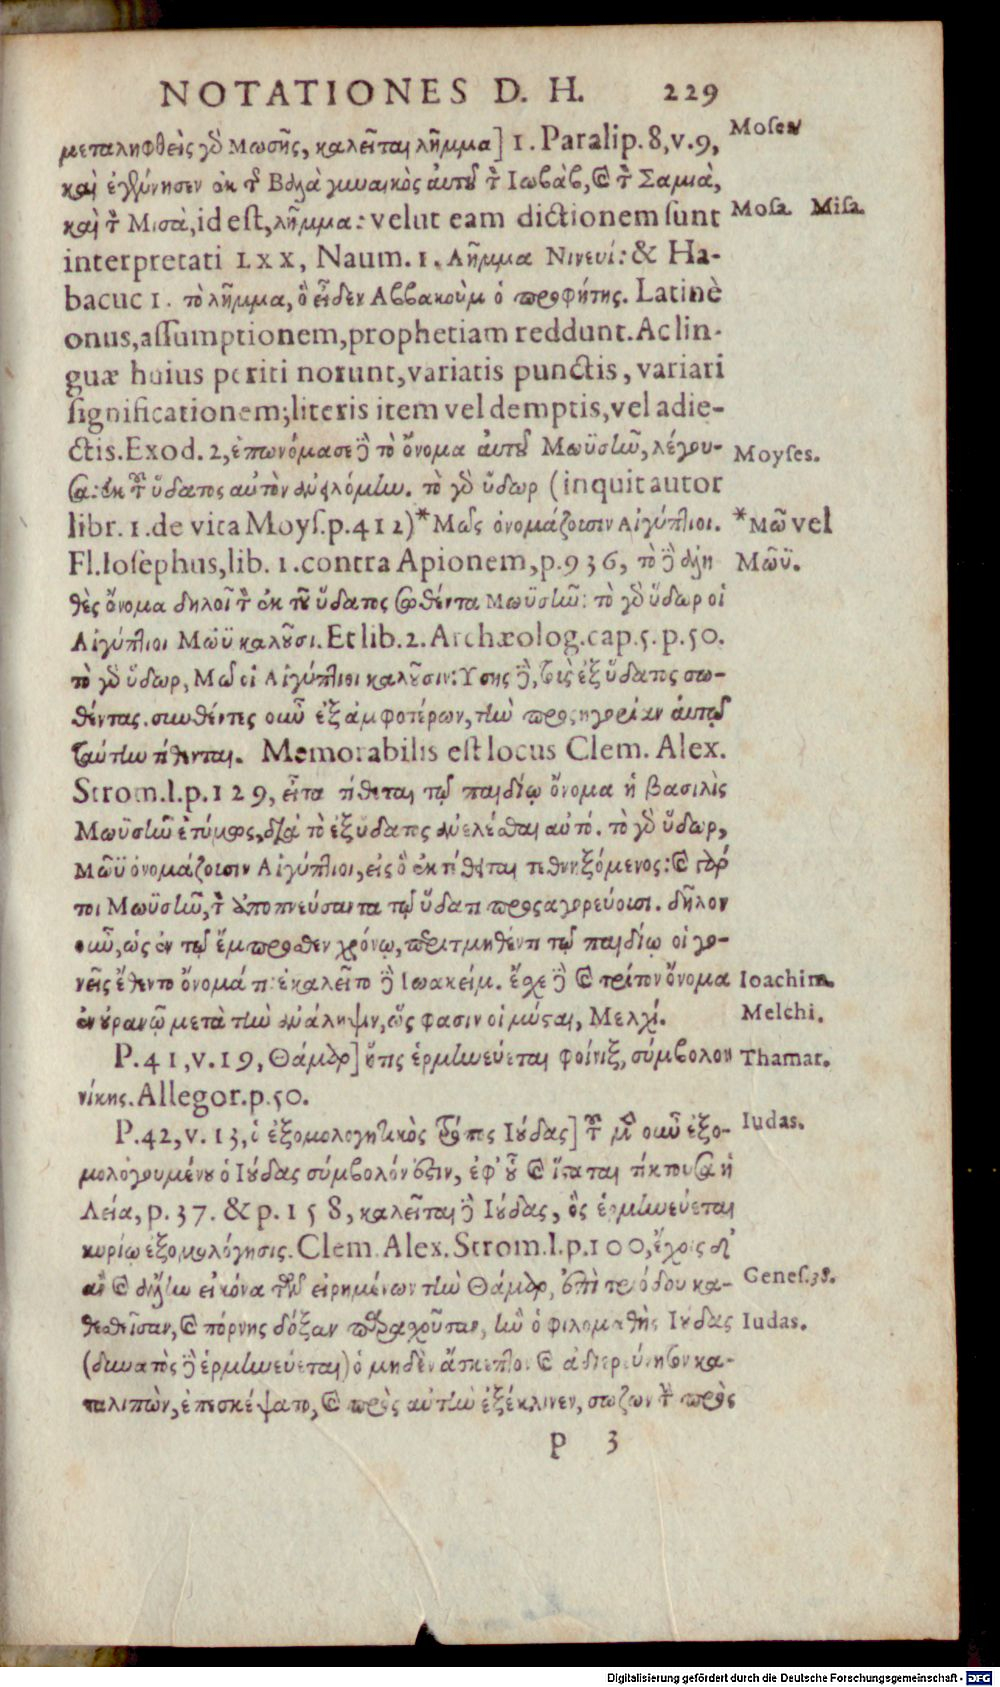 NOTATIONES D. H. 229
μεταληφθεὶς γὸ Μωσῆς, καλεῖται λῆμμα] 1. Paralip. 8, v. 9, Moses
καὶ ἐγέννησεν ἐκ τῆς Βδλὰ γυναικὸς αὐτοῦ τὸν Ιωβὰβ, καὶ τὸν Σαμιὰ,
καὶ τὸν Μισὰ, id est, λῆμμα: velut eam dictionem sunt Mosa. Misa.
interpretati LXX, Naum. 1. Λῆμμα Νινευί: & Ha-
bacuc 1. τὸ λῆμμα, ὃ εἶδεν Αββακοὺμ ὁ προφήτης. Latinè
onus, assumptionem, prophetiam reddunt. Ac lin-
guæ huius periti norunt, variatis punctis, variari
significationem; literis item vel demptis, vel adie-
ctis. Exod. 2, ἐπωνόμασε δὲ τὸ ὄνομα αὐτοῦ Μωϋσῆν, λέγου- Moyses.
σα: ἐκ τοῦ ὕδατος αὐτὸν ἀνειλόμην. τὸ γὰρ ὕδωρ (inquit autor
libr. 1. de vita Moys. p. 412) *Μῶς ὀνομάζουσιν Αἰγύπτιοι. *Μῶ vel
Fl. Iosephus, lib. 1. contra Apionem, p. 936, τὸ δὲ ἀλη Μῶϋ.
θὲς ὄνομα δηλοῖ τὸν ἐκ τοῦ ὕδατος σωθέντα Μωϋσῆν: τὸ γὰρ ὕδωρ οἱ
Αἰγύπτιοι Μῶϋ καλοῦσι. Et lib. 2. Archæolog. cap. 5. p. 50.
τὸ γὰρ ὕδωρ, Μῶ οἱ Αἰγύπτιοι καλοῦσιν: Υσης δὲ, τοὺς ἐξ ὕδατος σω-
θέντας. συνθέντες οὖν ἐξ ἀμφοτέρων, τὴν προσηγορίαν αὐτῷ
ταύτην τίθενται. Memorabilis est locus Clem. Alex.
Strom. l. p. 129, εἶτα τίθεται τῷ παιδίῳ ὄνομα ἡ βασιλὶς
Μωϋσῆν ἐτύμως, διὰ τὸ ἐξ ὕδατος ἀνελέσθαι αὐτό. τὸ γὰρ ὕδωρ,
Μῶϋ ὀνομάζουσιν Αἰγύπτιοι, εἰς ὃ ἐκτίθεται τεθνηξόμενος: καὶ γάρ
τοι Μωϋσῆν, τὸν ἀποπνεύσαντα τῷ ὕδατι προσαγορεύουσι. δῆλον
οὖν, ὡς ἐν τῷ ἔμπροσθεν χρόνῳ, περιτμηθέντι τῷ παιδίῳ οἱ γο-
νεῖς ἔθεντο ὄνομά τι: ἐκαλεῖτο δὲ Ιωακείμ. ἔσχε δὲ καὶ τρίτον ὄνομα Ioachim.
ἐν οὐρανῷ μετὰ τὴν ἀνάληψιν, ὥς φασιν οἱ μύσται, Μελχί. Melchi.
P. 41, v. 19, Θάμαρ] ἥτις ἑρμηνεύεται φοίνιξ, σύμβολον Thamar.
νίκης. Allegor. p. 50.
P. 42, v. 13, ὁ ἐξομολογητικὸς τρόπος Ιούδας] τοῦ μὲν οὖν ἐξο- Iudas.
μολογουμένου ὁ Ιούδας σύμβολόν ἐστιν, ἐφ' οὗ καὶ ἵσταται τίκτουσα ἡ
Λεία, p. 37. & p. 158, καλεῖται δὲ Ιούδας, ὃς ἑρμηνεύεται
κυρίῳ ἐξομολόγησις. Clem. Alex. Strom. l. p. 100, ἔχοις δ'
ἂν καὶ ἄλλην εἰκόνα τῶν εἰρημένων τὴν Θάμαρ, ἐπὶ τριόδου κα- Genes. 38.
θεσθεῖσαν, καὶ πόρνης δόξαν παρασχοῦσαν, ἣν ὁ φιλομαθὴς Ιούδας Iudas.
(δυνατὸς δὲ ἑρμηνεύεται) ὁ μηδὲν ἄσκεπτον καὶ ἀδιερεύνητον κα-
ταλιπὼν, ἐπεσκέψατο, καὶ πρὸς αὐτὴν ἐξέκλινεν, σωζων τὴν πρὸς
p 3
Digitalisierung gefördert durch die Deutsche Forschungsgemeinschaft - DFG